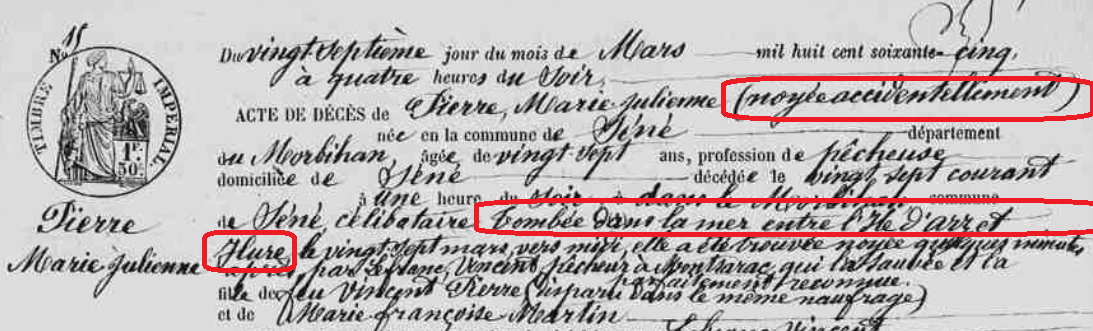 No 15
TIMBRE IMPERIAL
1F. 50c.
Du vingt septième jour du mois de Mars mil huit cent soixante-cinq,
à quatre heures du Soir,
ACTE DE DÉCÈS de Pierre, Marie Julienne (noyée accidentellement)
née en la commune de Séné département
du Morbihan, âgée de vingt-sept ans, profession de pêcheuse
domiciliée de Séné décédée le vingt sept courant
à une heure du Soir à dans le Morbihan commune
de Séné célibataire tombée dans la mer entre l'Ile d'arz et
Ilure, le vingt sept mars, vers midi, elle a été trouvée noyée quelques minutes
après par Lefranc, Vincent, pêcheur à Montsarac, qui l'a sauvée et l'a
parfaitement reconnue.
fille de feu Vincent Pierre (disparu dans le même naufrage)
et de Marie françoise Martin
Pierre
Marie Julienne
Vincent